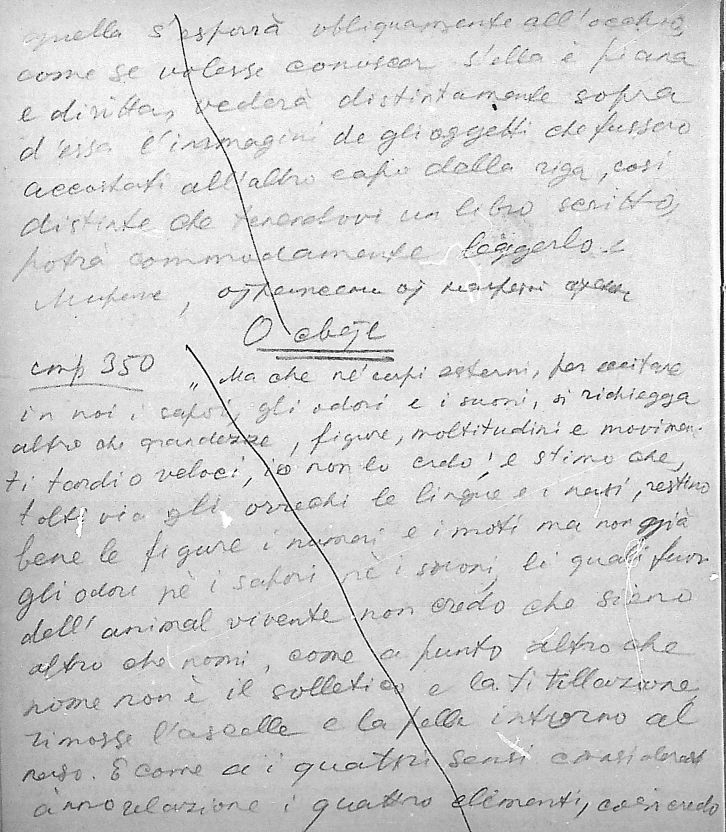 quella s'esporrà obliquamente all'occhio,
come se volesse conoscer s'ella è piana
e diritta, vederà distintamente sopra
d'essa l'immagini de gli oggetti che fussero
accostati all'altro capo della riga, così
distinte che tenendovi un libro scritto,
potrà commodamente leggerlo e
О свете
стр 350 „ Ma che ne' corpi esterni, per eccitare
in noi i sapori, gli odori e i suoni, si richiegga
altro che grandezze, figure, moltitudini e movimen-
ti tardi o veloci, io non lo credo; e stimo che,
tolti via gli orecchi le lingue e i nasi, restino
bene le figure i numeri e i moti ma non già
gli odori nè i sapori nè i suoni, li quali fuor
dell'animal vivente non credo che sieno
altro che nomi, come a punto altro che
nome non è il solletico e la titillazione,
rimosse l'ascelle e la pelle intorno al
naso. E come a i quattri sensi considerati
ànno relazione i quattro elementi, così credo